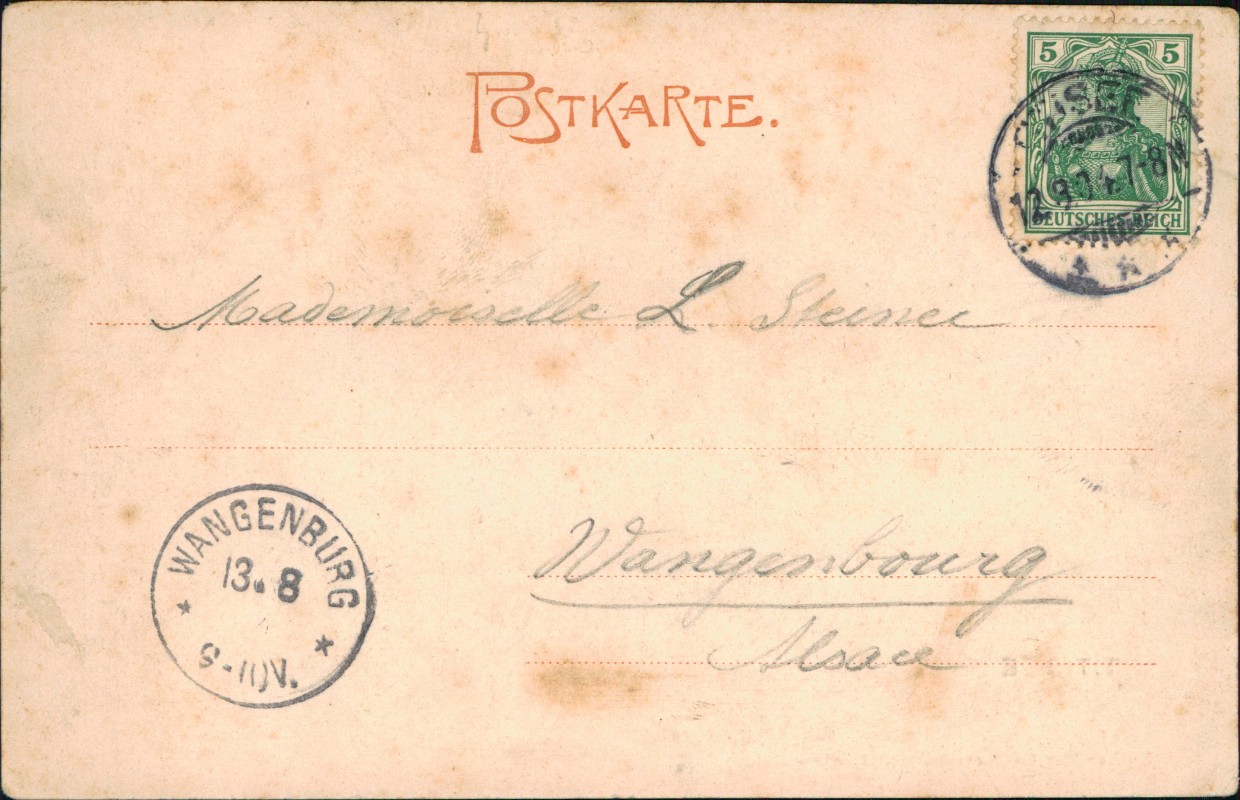 POSTKARTE.
5 5
DEUTSCHES REICH
12.8.04.7-8N
Mademoiselle L. Steiner
WANGENBURG
13. 8
Wangenbourg
Alsace